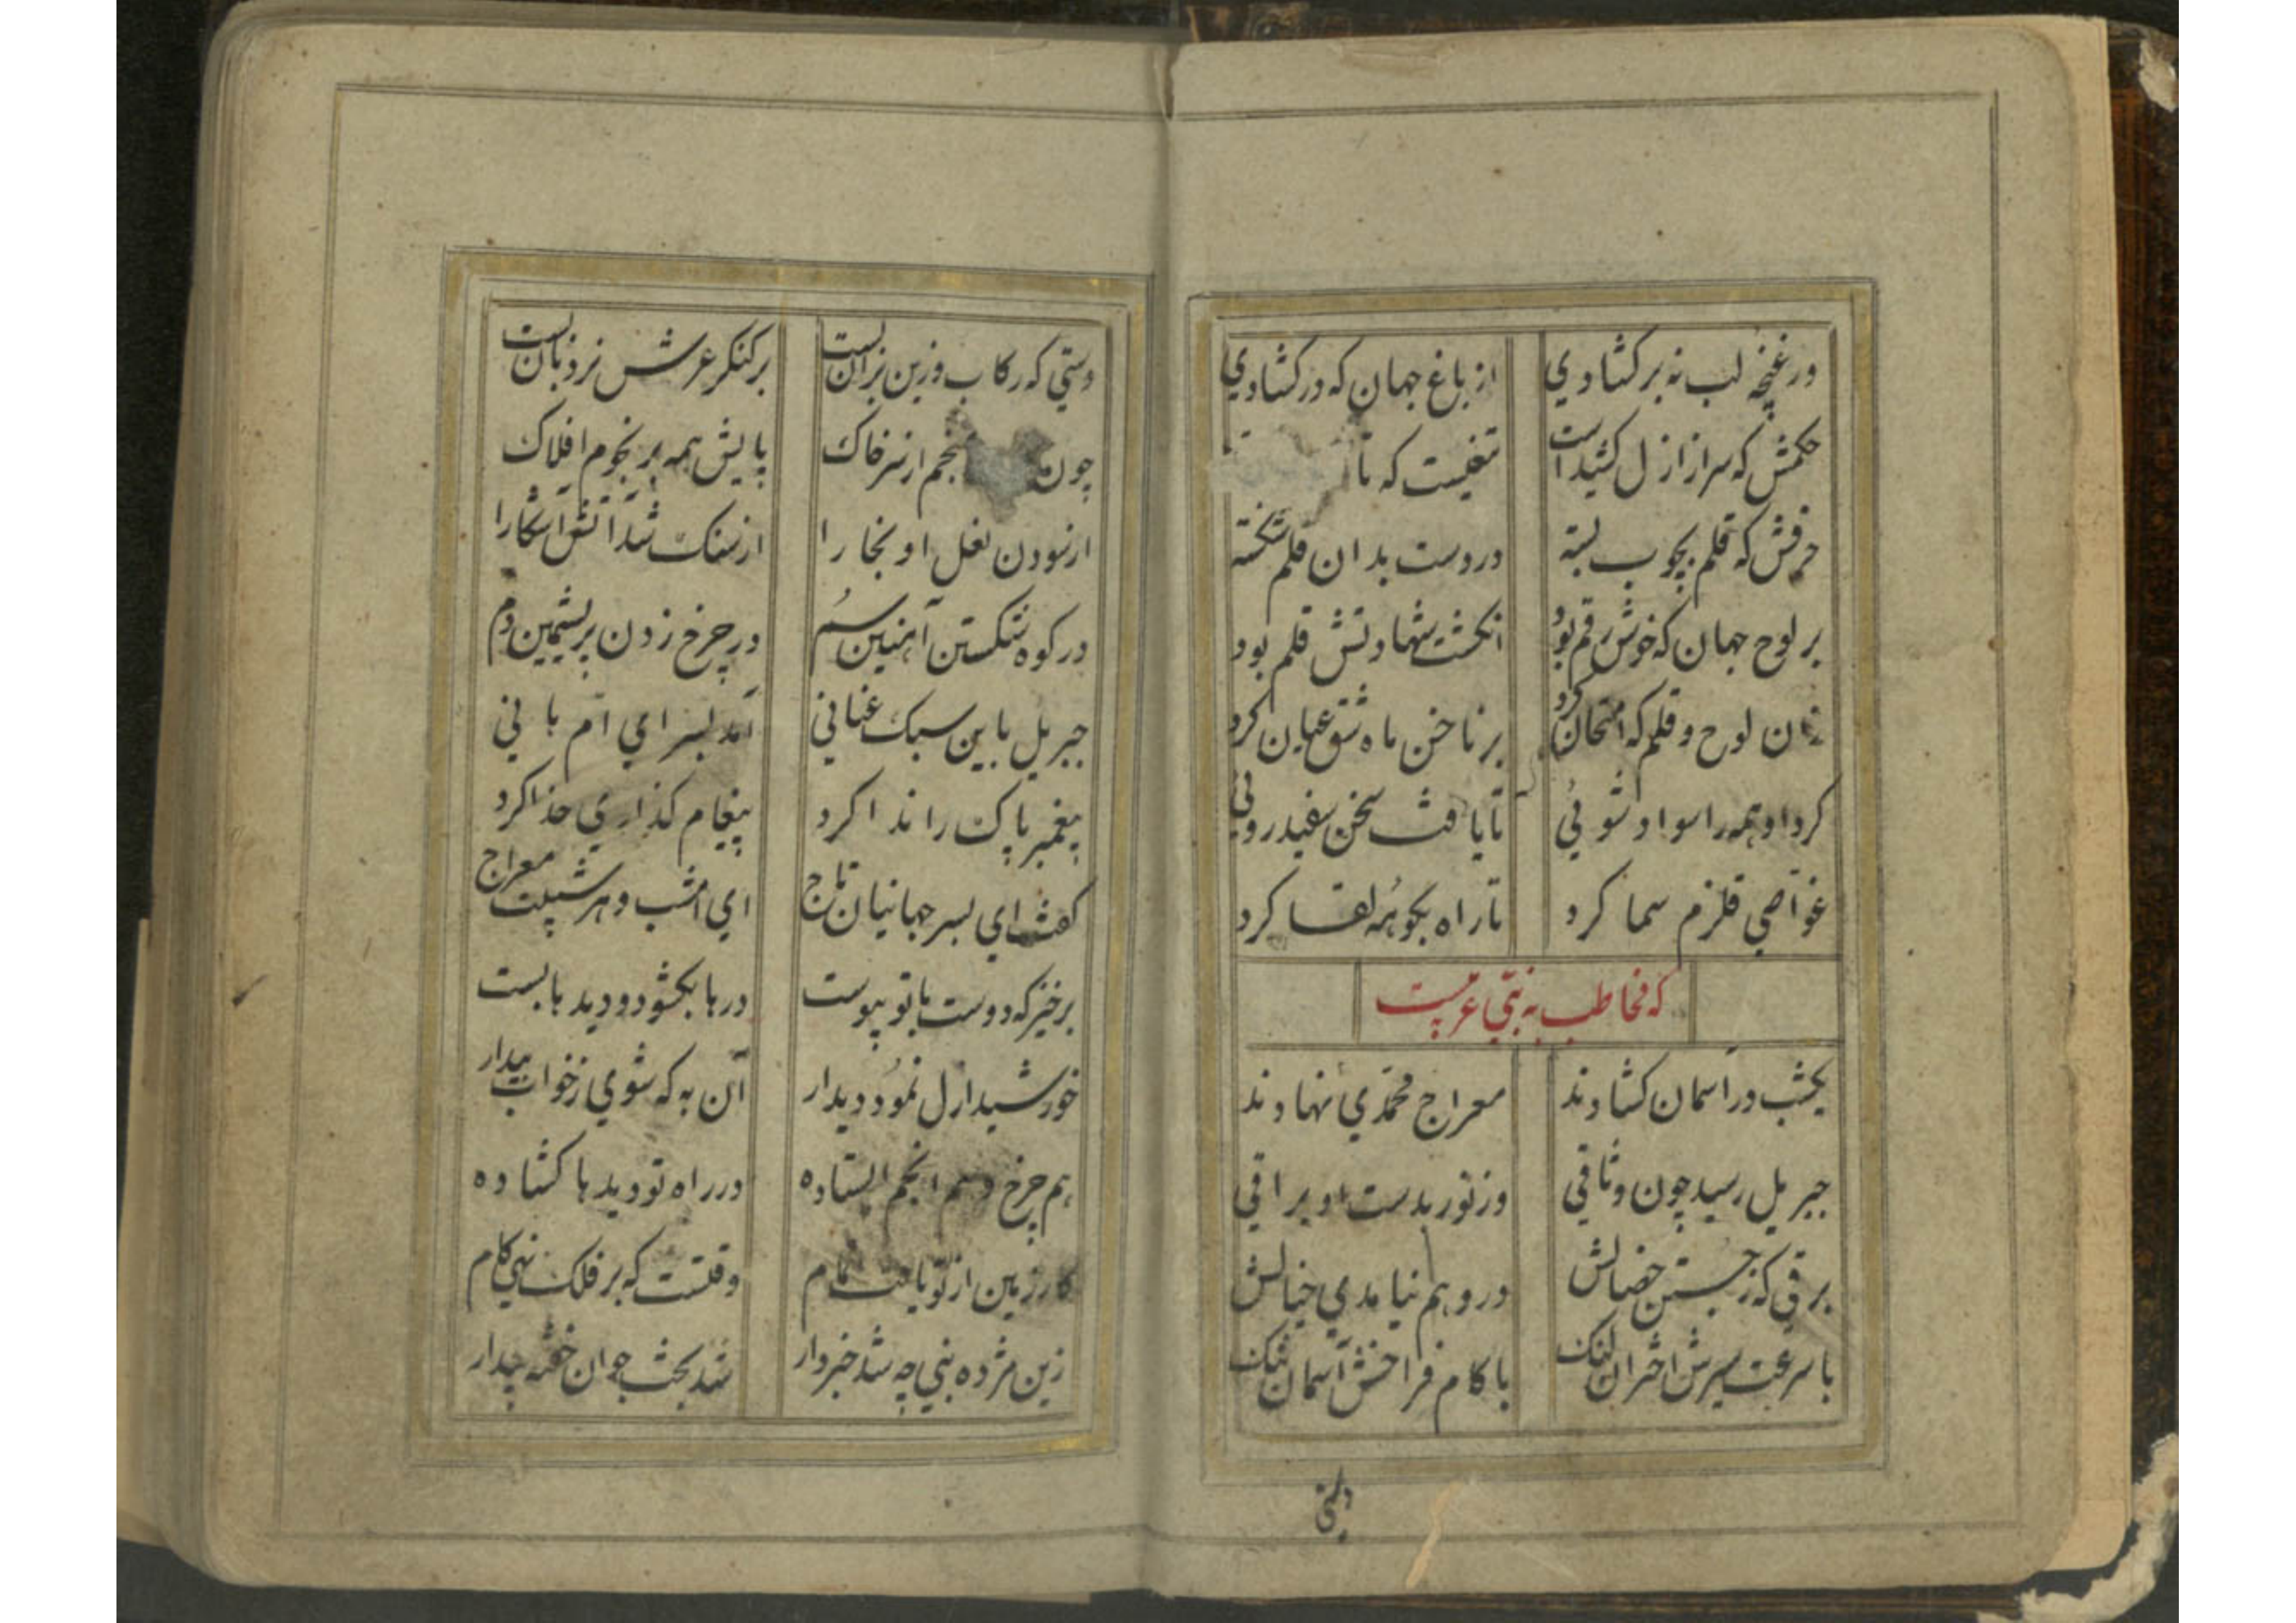 ور غنچه لب نه بر کشادی از باغ جهان که در کشادی
حکمش که سر از ازل کشیداست تیغیست که تا
حرفش که قلم بچوب بسته در دست بدان قلم شکسته
بر لوح جهان که خوش رقم بود انکشت شهادتش قلم بود
زان لوح و قلم که امتحان کرد بر ناخن ماه شق عیان کرد
کرد او همه را سواد شوئی تا یافت سخن سفید روئی
غواصی قلزم سما کرد تا راه بکوهر لقا کرد
که مخاطب به نبی عربیست
یکشب در آسمان کشادند معراج محمدی نهادند
جبریل رسید چون وثاقی وز نور بدست او براقی
برقی که ز جستن خصالش در وهم نیامدی خیالش
با سرعت سیرش اختران لنک با کام فراخش آسمان تنک
دستی
دستی که رکاب و زین بران بست بر کنکر عرش نردبان بست
چون انجم از سر خاک پایش همه بر نجوم افلاک
از سودن نعل او بخارا از سنک شد آتش آشکارا
در کوه شکستن آهنین سم در چرخ زدن بریشمین دم
جبریل باین سبک عنانی آمد بسرای ام هانی
پیغمبر پاک را ندا کرد پیغام کذاری خدا کرد
کفت ای بسر جهانیان تاج ای امشب و هر شبیت معراج
برخیز که دوست با تو پیوست درها بکشود و دیدها بست
خورشید ازل نمود دیدار آن به که شوی ز خواب بیدار
هم چرخ و هم انجم ایستاده در راه تو دیدها کشاده
کار زمین از تو یافت تمام وقتست که بر فلک نهی کام
زین مژده نبی چه شد خبردار شد بخت جوان خفته بیدار